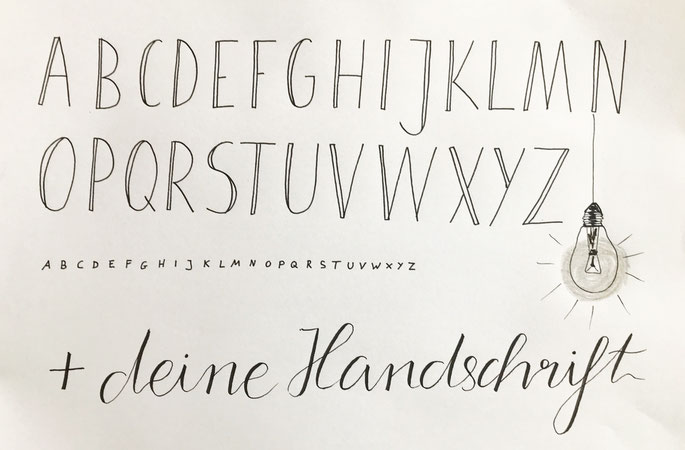 ABCDEFGHIJKLMN
OPQRSTUVWXYZ
ABCDEFGHIJKLMNOPQRSTUVWXYZ
+ deine Handschrift